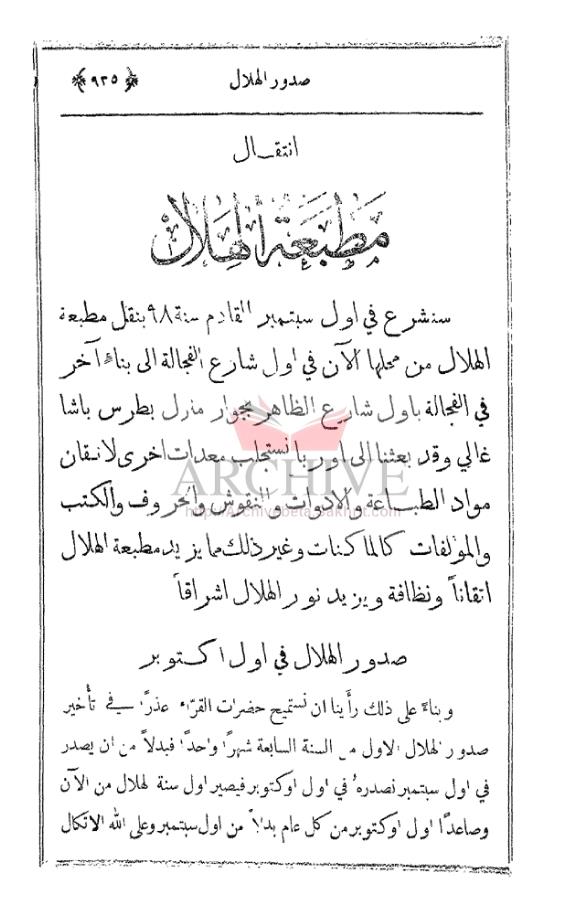 صدور الهلال ﴿ ٩٣٥ ﴾
انتقال
مطبعة الهلال
سنشرع في اول سبتمبر القادم سنة ٩٨ بنقل مطبعة
الهلال من محلها الآن في اول شارع الفجالة الى بناءٍ آخر
في الفجالة باول شارع الظاهر بجوار منزل بطرس باشا
غالي وقد بعثنا الى اوربا نستجلب معدات اخرى لاتقان
مواد الطباعة والادوات والنقوش والحروف والكتب
والمؤلفات كالماكنات وغير ذلك مما يزيد مطبعة الهلال
اتقاناً ونظافة ويزيد نور الهلال اشراقاً
صدور الهلال في اول اكتوبر
وبناءً على ذلك رأينا ان نستميح حضرات القرّاء عذراً في تأخير
صدور الهلال الاول من السنة السابعة شهراً واحداً فبدلاً من ان يصدر
في اول سبتمبر نصدرهُ في اول اوكتوبر فيصير اول سنة الهلال من الآن
وصاعداً اول اوكتوبر من كل عام بدلاً من اول سبتمبر وعلى الله الاتكال
ARCHIVE